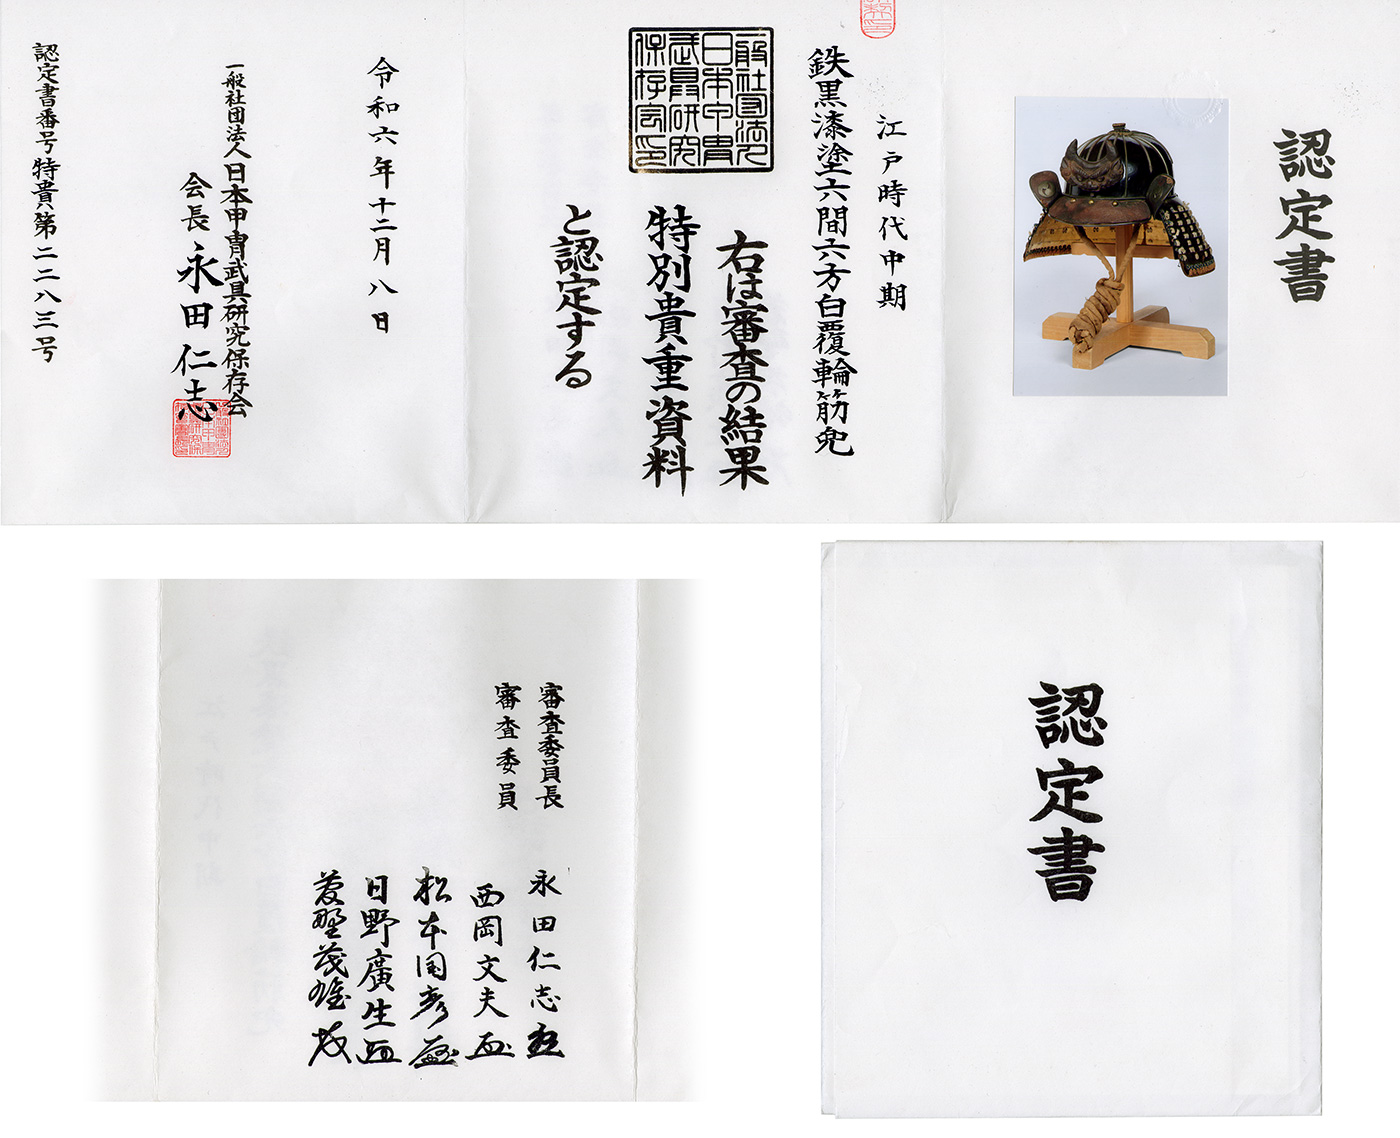 認定書
江戸時代中期
鉄黒漆塗六間六方白覆輪筋兜
一般社団法人
日本甲冑
武具研究
保存会印
右は審査の結果
特別貴重資料
と認定する
令和六年十二月八日
一般社団法人日本甲冑武具研究保存会
会長 永田仁志
認定書番号特貴第二二八三号
審査委員長 永田仁志
審査委員 西岡文夫
松本国彦
日野廣生
菱野茂雄
認定書